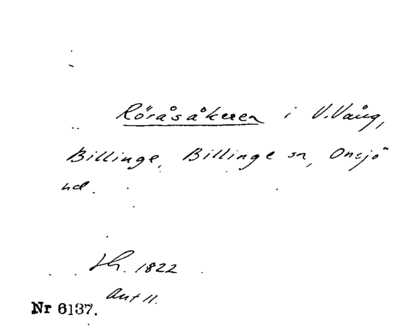 Röråsåkeren i V.Vång,
Billinge, Billinge sn, Onsjö
hd.
Sk. 1822
Ant 11.
Nr 6137.